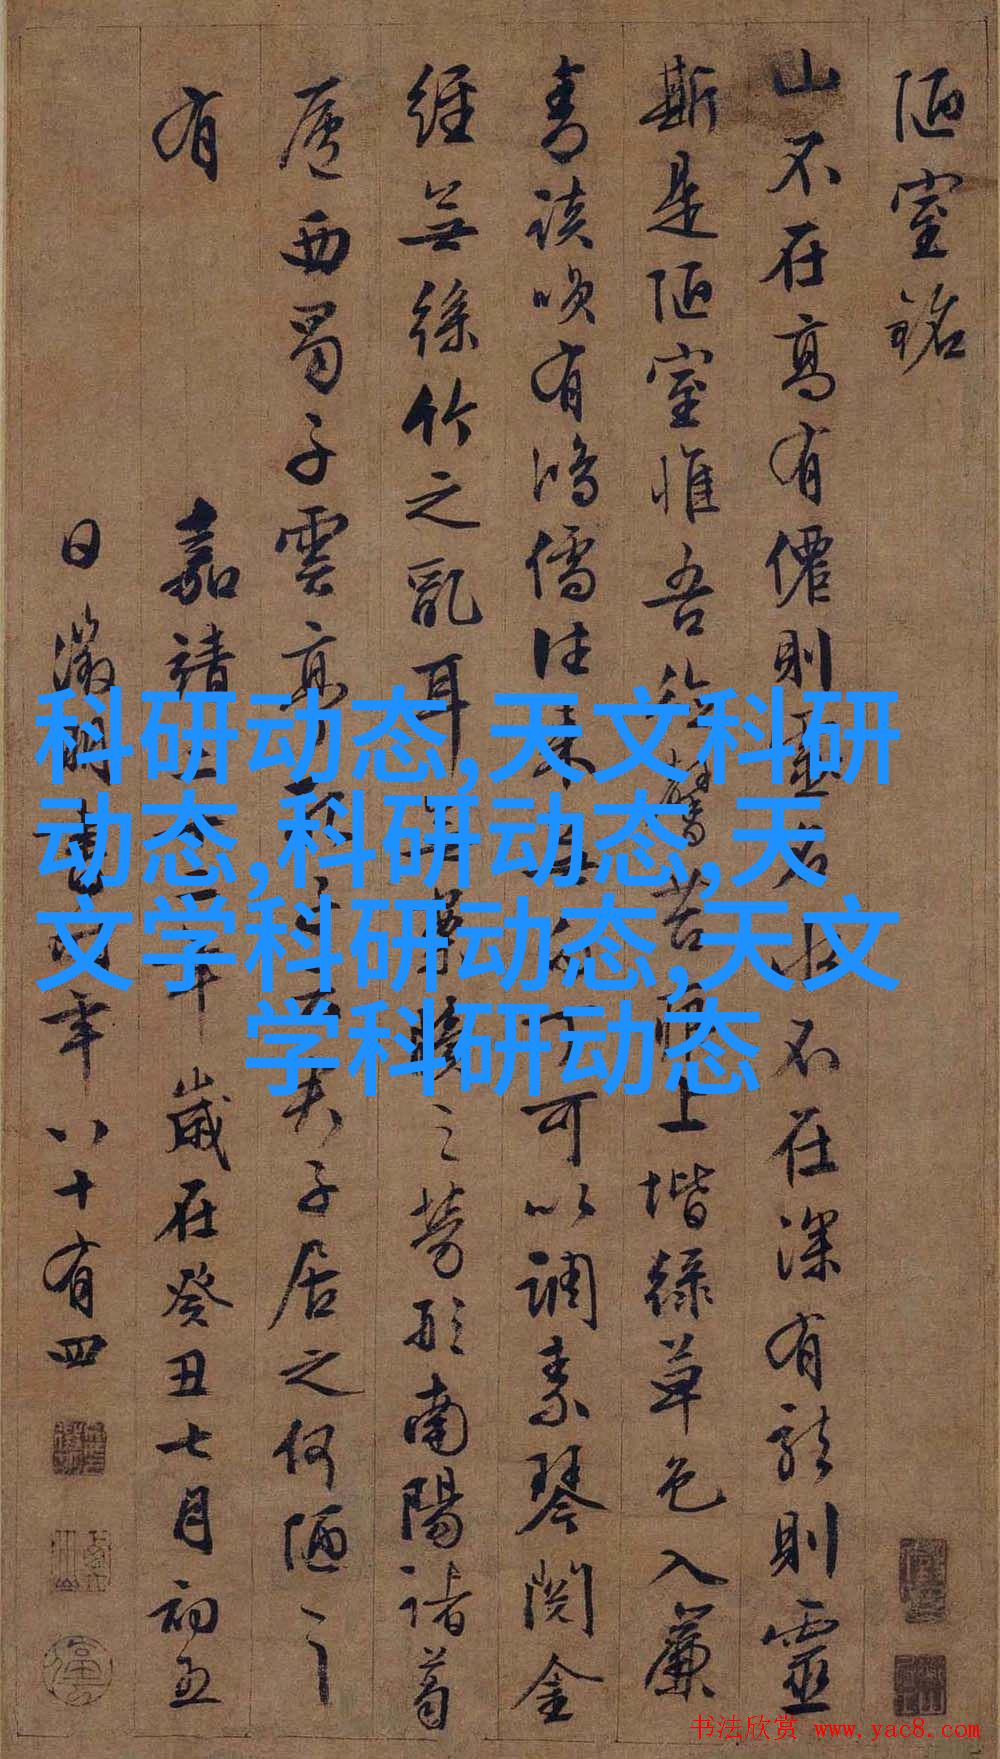 陋室銘
山不在高有僊則名水不在深有龍則靈
斯是陋室惟吾德馨苔痕上堦綠草色入簾
青談咲有鴻儒往來可以調素琴閱金
經無絲竹之亂耳案牘之勞形南陽諸葛
廬西蜀子雲亭子居之何陋之
有
嘉靖年歲在癸丑七月初五
日徵明書時年八十有四
科研动态,天文科研
动态,科研动态,天
文学科研动态,天文
学科研动态
书法欣赏 www.yac8.com